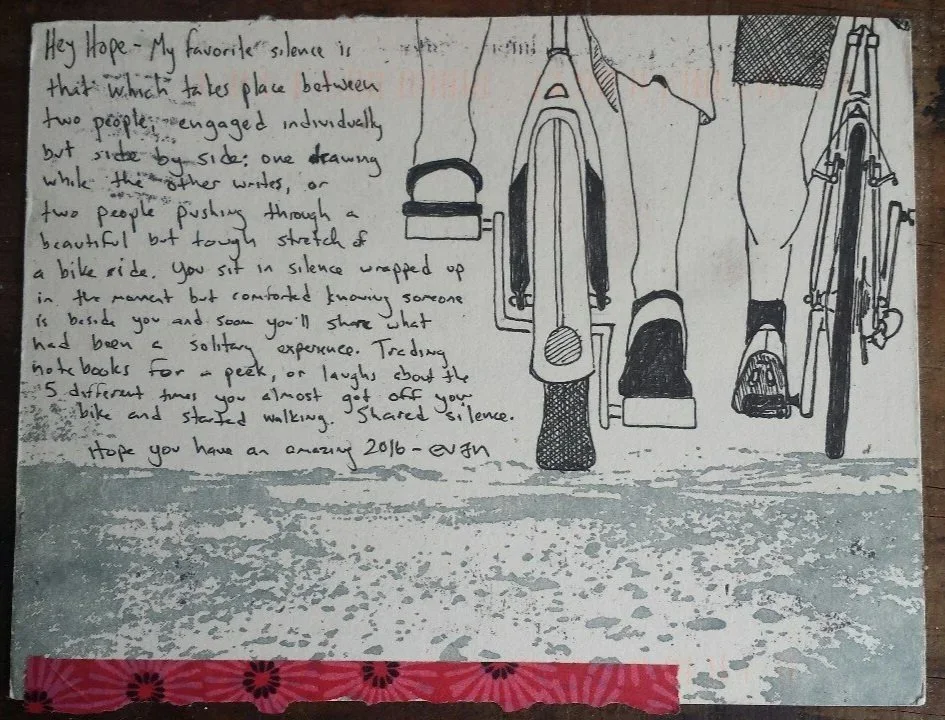 Hey Hope - My favorite silence is
that which takes place between
two people, engaged individually
but side by side: one drawing
while the other writes, or
two people pushing through a
beautiful but tough stretch of
a bike ride. You sit in silence wrapped up
in the moment but comforted knowing someone
is beside you and soon you'll share what
had been a solitary experience. Trading
notebooks for a peek, or laughs about the
5 different times you almost got off your
bike and started walking. Shared silence.
Hope you have an amazing 2016 - evan